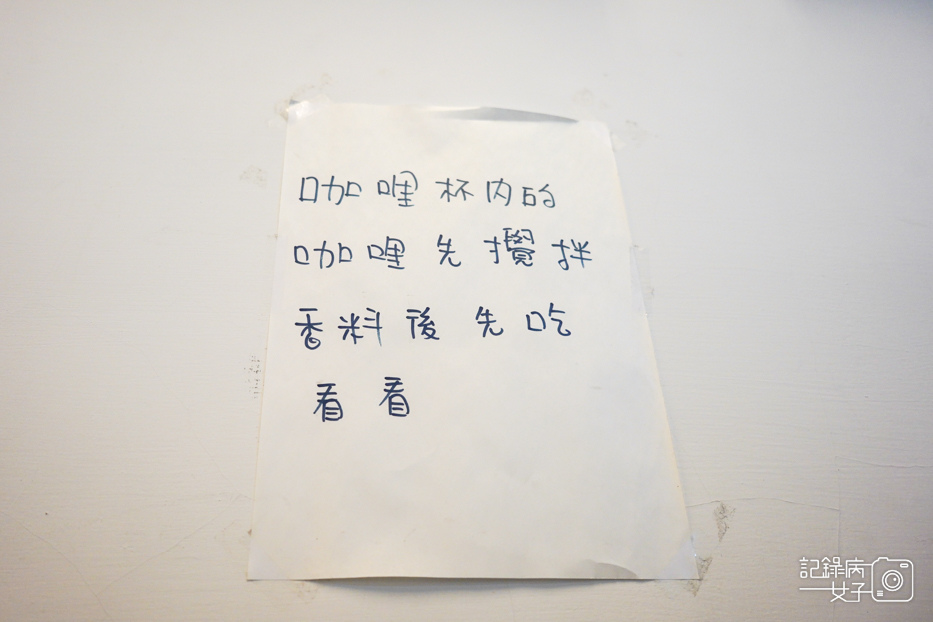 咖哩杯內的
咖哩先攪拌
香料後先吃
看看
記錄病
女子